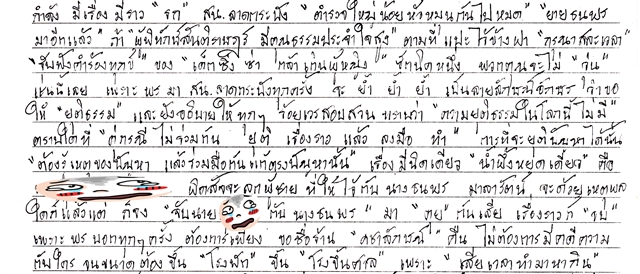 กำลัง มีเรื่อง มีราว "รัก" สน.ลาดกระบัง "ตำรวจใหญ่น้อย หัวหมุนกันไปหมด" "ยายธนพร
มาอีกแล้ว" ถ้า "ผู้พิทักษ์สันติราษฎร์ มีคุณธรรมประจำใจสูง" ตามที่ แปะไว้ข้างฝา "กรุณาสละเวลา"
"รับฟังคำร้องทุกข์" ของ "เด็กซิ่ง ซ่า กล้า เกินผู้หญิง" ซักนิดหนึ่ง พวกคุณจะไม่ "วุ่น"
เช่นนี้เลย เพราะ พร มา สน.ลาดกระบังทุกครั้ง จะ ย้ำ ย้ำ ย้ำ เป็นลายลักษณ์อักษร ว่าขอ
ให้ "ยุติธรรม" และยังอธิบายให้ทุกๆ ร้อยเวรสอบสวน ทราบว่า "ความยุติธรรมในโลกนี้ไม่มี"
ตราบใดที่ "คู่กรณี ไม่ร่วมกัน ยุติ เรื่องราว แล้ว ลงมือ ทำ" การที่จะยุติปัญหาได้นั้น
"ต้องรู้เหตุของปัญหา แล้วร่วมมือกันแก้ตรงปัญหานั้น" เรื่องมีนิดเดียว "น้ำผึ้งหยดเดียว" คือ
ลูกผู้ชาย ที่ให้ไว้กับ นางธนพร มาลารัตน์ จะด้วยเหตุผล
ใดก็แล้วแต่ ก็จง "จับนาย กับ นางธนพร" มา "คุย" กันเสีย เรื่องราวก็ "จบ"
เพราะ พร บอกทุกๆครั้ง ต้องการเพียง ขอชื่อร้าน "คชาลักษณ์" คืน ไม่ต้องการมีคดีความ
กับใคร จนขนาดต้อง ขึ้น "โรงพัก" ขึ้น "โรงขึ้นศาล" เพราะ "เสียเวลาทำมาหากิน"